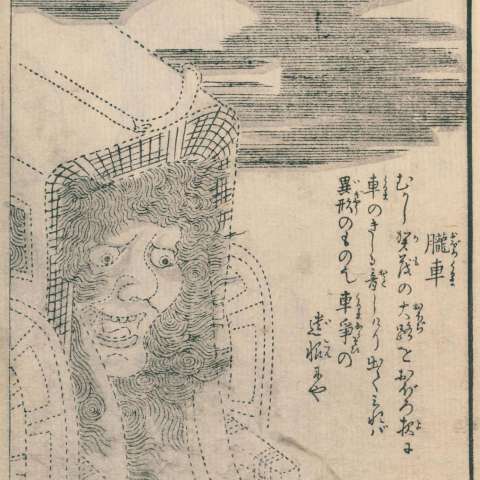 朧車
おぼろくるま
むかし賀茂の大路をおぼろ夜に
車のきしる音しけり出てみれば
異形のもの也車争の
遺恨にや